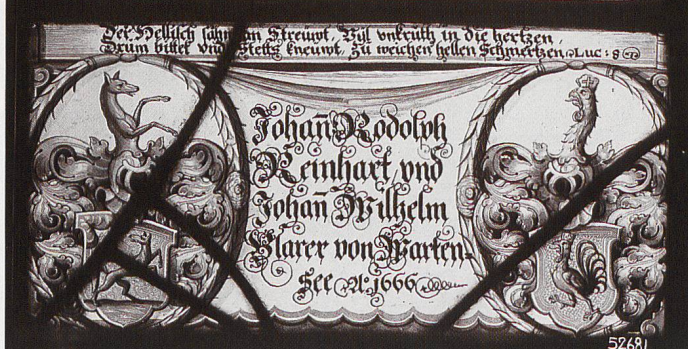 Der Hellisch sahman Streuwt, Vyl vnkruth in die hertzen,
Drum bittet vnd stetts kneuwt, Zu weichen hellen Schmertzen Luc: 8
Johañ Rodolph
Reinhart vnd
Johañ Wilhelm
Blarer von Warten-
See Aº 1666
52681